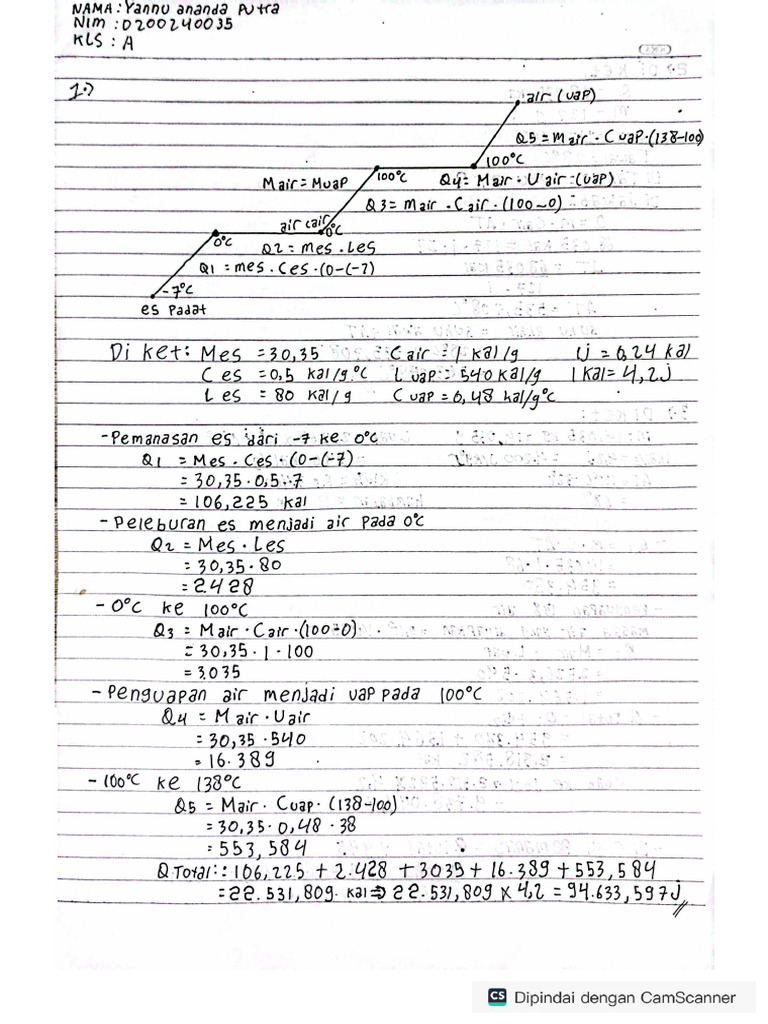 NAMA : Yannu ananda Putra
Nim : 0200240035
KLS : A
1.)
air (uap)
Q5 = Mair . C uap . (138-100)
100°C
100°C
Mair = Muap
Q4 = Mair . U air : (uap)
Q3 = Mair . Cair . (100-0)
air cair
0°C
0°C
Q2 = mes . Les
Q1 = mes . Ces . (0-(-7)
-7°C
es Padat
Di ket : Mes = 30,35 C air = 1 kal/g 1j = 0,24 kal
C es = 0,5 kal/g.°C L uap = 540 kal/g 1 kal = 4,2j
L es = 80 kal/g C uap = 0,48 kal/g°C
- Pemanasan es dari -7 ke 0°C
Q1 = Mes . Ces . (0-(-7)
= 30,35 . 0,5 . 7
= 106,225 kal
- Peleburan es menjadi air pada 0°C
Q2 = Mes . Les
= 30,35 . 80
= 2.428
- 0°C ke 100°C
Q3 = Mair . Cair . (100-0)
= 30,35 . 1 . 100
= 3.035
- Penguapan air menjadi uap pada 100°C
Q4 = Mair . Uair
= 30,35 . 540
= 16.389
- 100°C ke 138°C
Q5 = Mair . Cuap . (138-100)
= 30,35 . 0,48 . 38
= 553,584
Q Total : 106,225 + 2.428 + 3035 + 16.389 + 553,584
= 22.531,809 kal ⇒ 22.531,809 x 4,2 = 94.633,597j
CS Dipindai dengan CamScanner